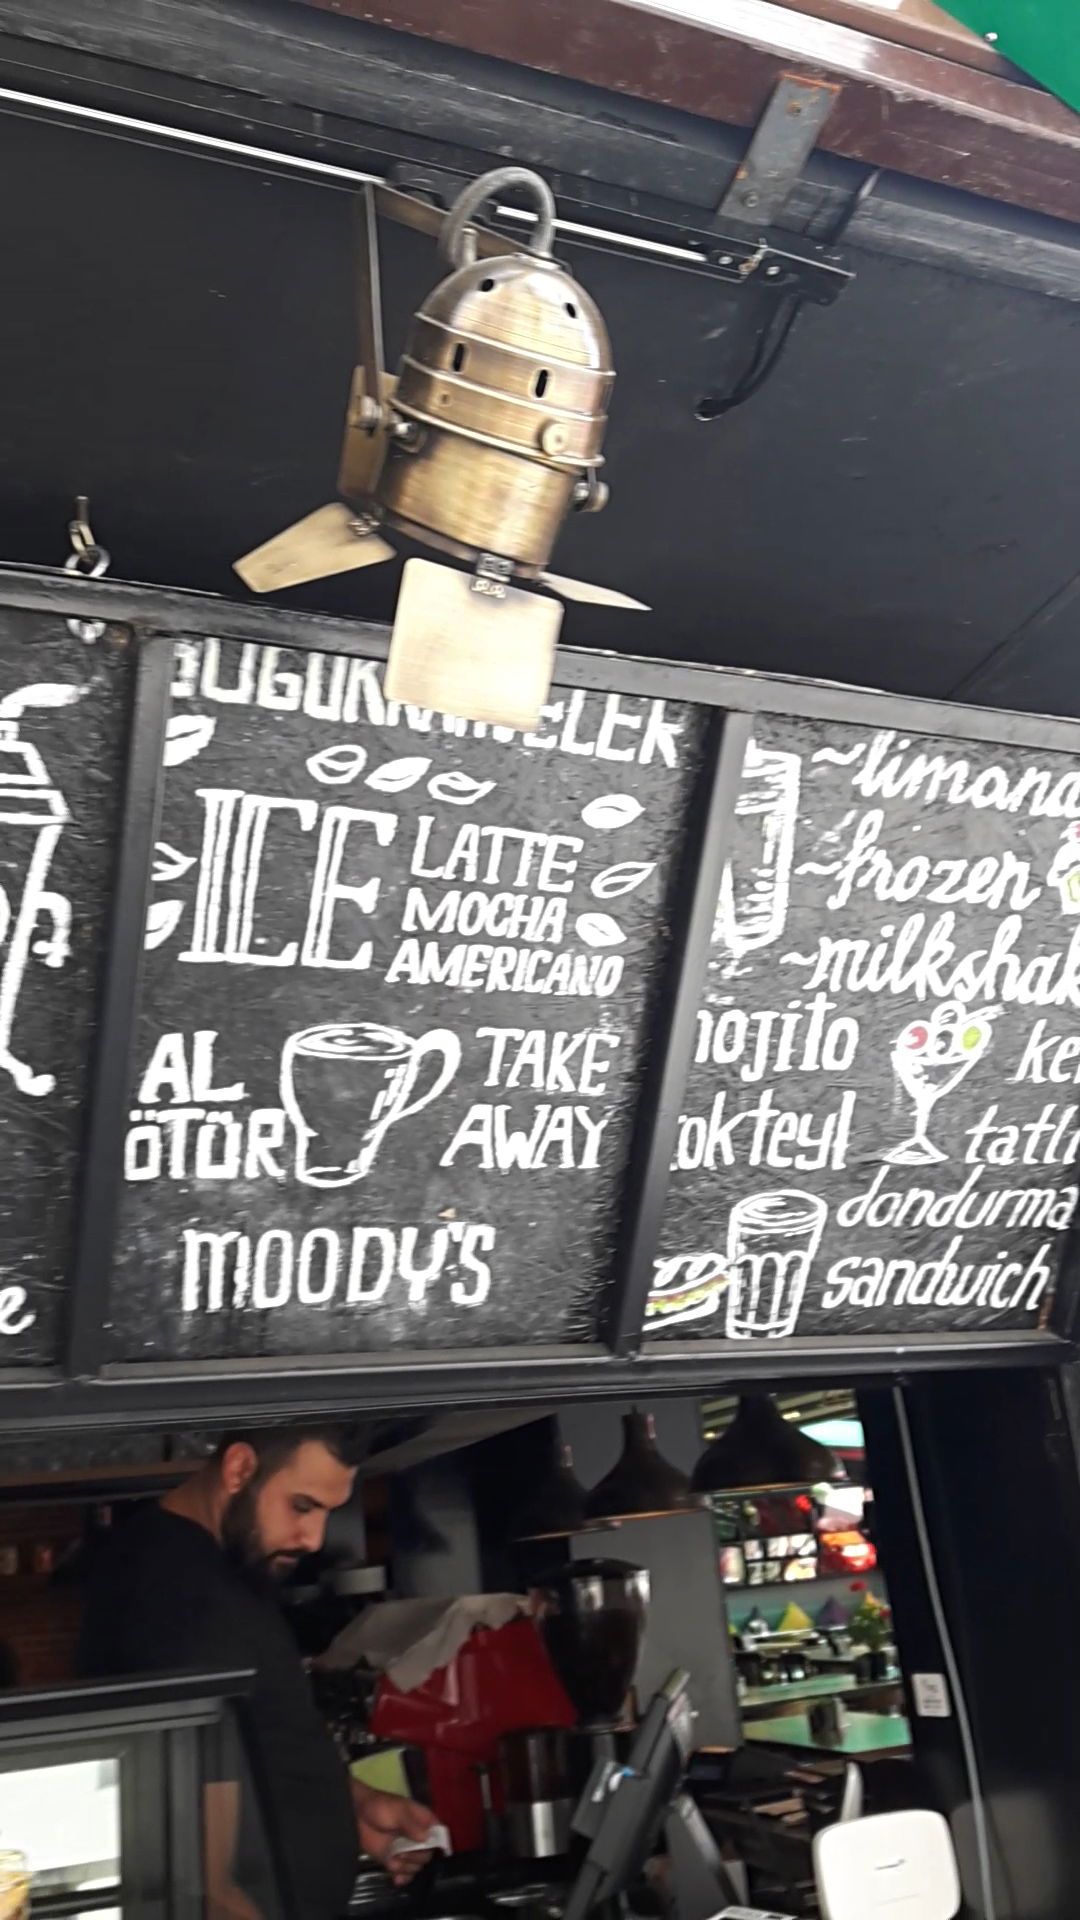 ICE LATTE
MOCHA
AMERICANO
AL
ÖTÜR
TAKE
AWAY
MOODY'S
~limona
~frozen
~milkshak
ojito
okteyl
ke
tatlı
dondurma
sandwich
e